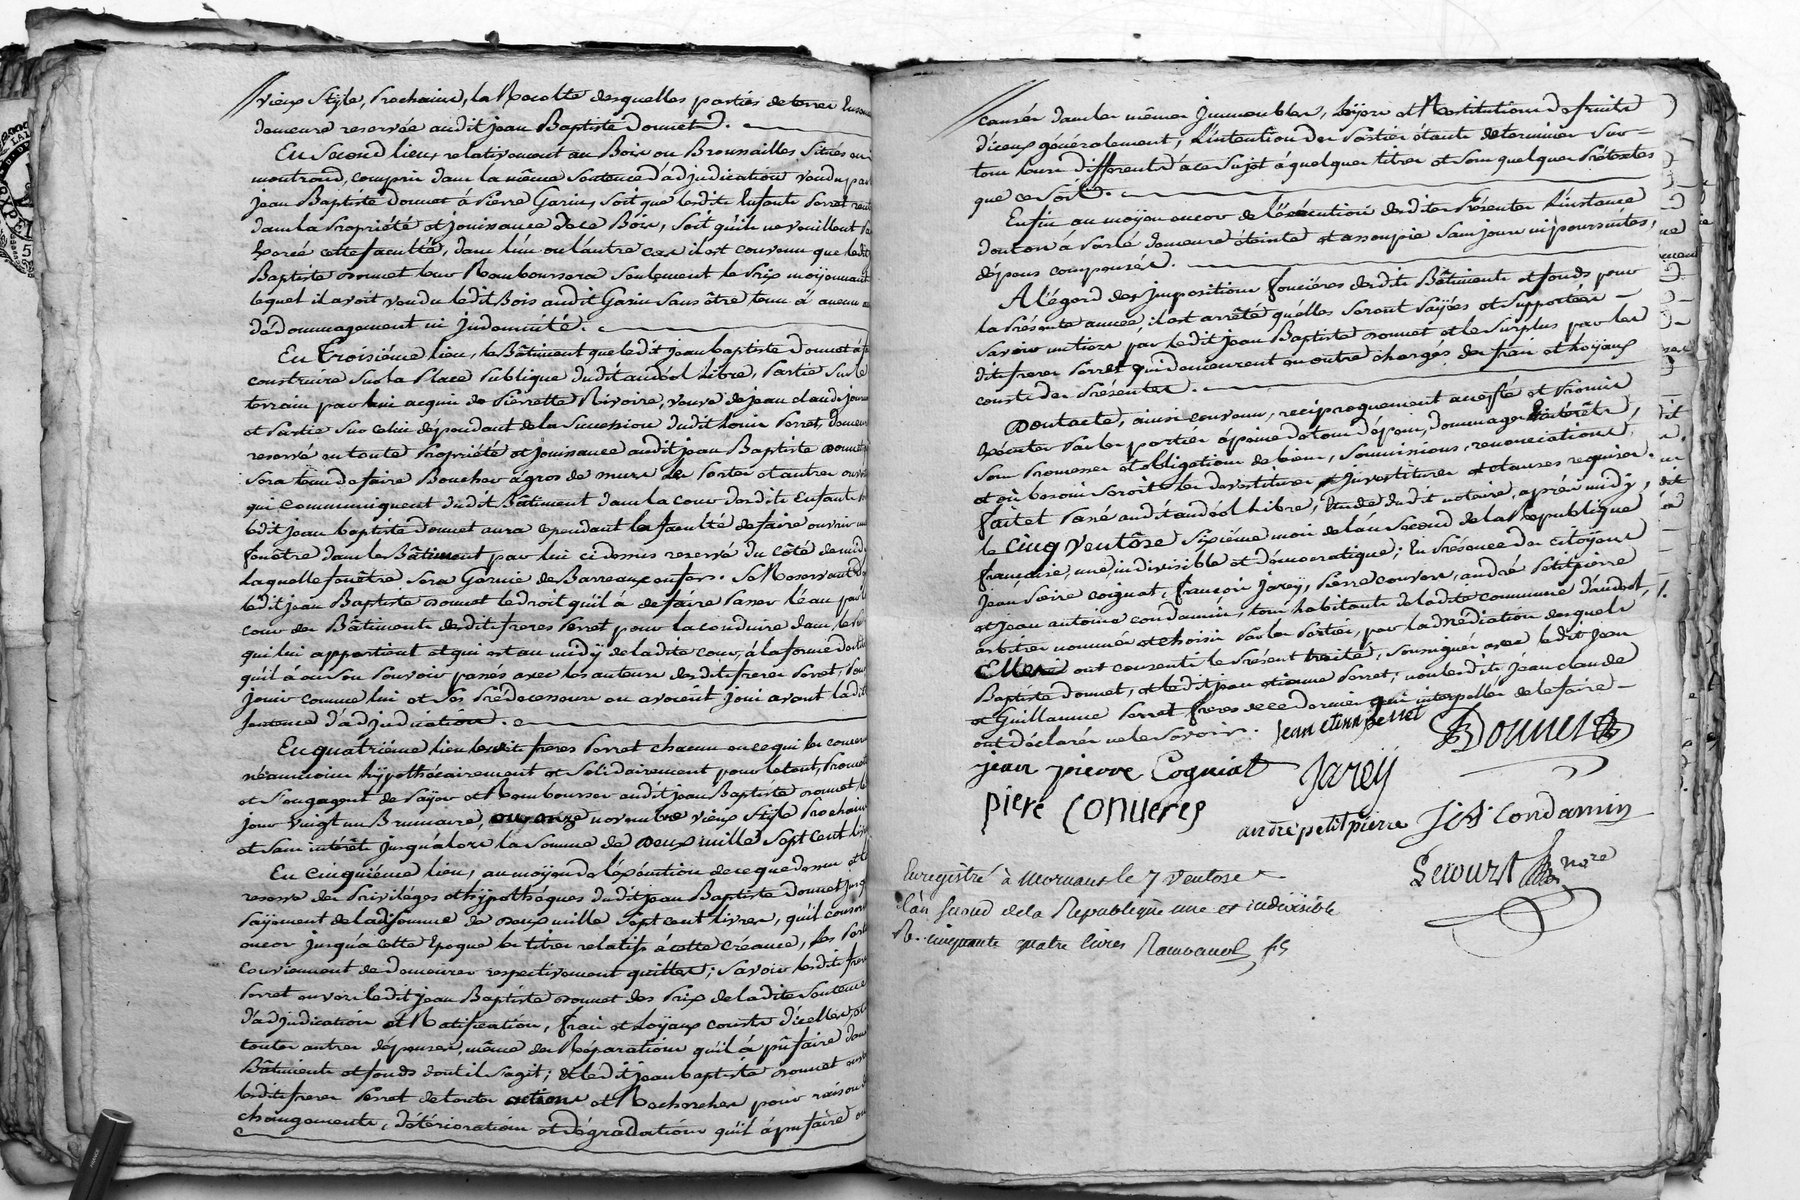 vieux Stÿle, Prochaine, la Recolte desquelles parties de terrer
demeure reservée audit jean Baptiste donnet.
En Second lieu, relativement au Bois ou Broussailles Situés en
montrond, compris dans la même Sentence d'adjudication vendu par
jean Baptiste Donnet à Pierre Garin, Soit que lesdits Enfants Perret
dans la Propriété et jouissance de ce Bois, Soit qu'ils ne veuillent
Exercé cette faculté, dans l'un ou l'autre cas il est convenu que ledit
Baptiste Donnet leur Remboursera Seulement le Prix moÿennant
lequel il avoit vendu ledit Bois audit Garin Sans être tenu à aucun
dédommagement ni Indemnité.
En Troisiéme lieu, le Bâtiment que ledit jean baptiste Donnet à fait
construire Sur la Place Publique dudit andéol Libre, Partie Sur le
terrein par lui acquis de Pierrette Rivoire, veuve de jean claude
et Partie Sur celui dépendant de la Succession dudit Louis Perret, demeure
reservé en toute Propriété et jouissance audit jean Baptiste Donnet
Sera tenu de faire Boucher à gros de murs les Portes et autres
qui communiquent dudit Bâtiment dans la cour desdits Enfants
ledit jean baptiste Donnet aura cependant la faculté de faire ouvrir une
fenêtre dans le Bâtiment par lui ci dessus reservé du côté de midi
Laquelle fenêtre Sera Garnie de Barreaux en fer. Se Reservant
ledit jean Baptiste Donnet le droit qu'il à de faire Passer l'eau par la
cour des Bâtiments desdits freres Perret pour la conduire dans le
qui lui appartient et qui est au midÿ de ladite cour, à la forme
qu'il à ou Son Pouvoir passés avec les auteurs desdits freres Perret, Pour
jouir comme lui et Ses Prédecesseurs en avoient joui avant ladite
Sentence d'adjudication.
En quatriéme lieu lesdits freres Perret chacun en ce qui les concerne
néanmoins hÿpothécairement et Solidairement pour le tout, Promettent
et S'engagent de Paÿer et Rembourser audit jean Baptiste Donnet le
jour vingt un Brumaire, ou onze novembre vieux Stÿle Prochain
et Sans intérêts jusqu'alors la Somme de Deux mille Sept cent livres
En cinquiéme lieu, au moÿen de l'exécution de ce que dessus et
reserve des Priviléges et hÿpothéques dudit jean Baptiste Donnet jusqu'
Paÿement de ladite Somme de Deux mille Sept cent livres, qu'il conserve
encor jusqu'a cette Epoque les titres relatifs à cette créance, les Parties
conviennent de demeurer respectivement quittes; Savoir lesdits freres
Perret envers ledit jean Baptiste Donnet des Prix de ladite Sentence
d'adjudication et Ratification, frais et loÿaux couts d'icelles, et
toutes autres dépenses, même des Réparations qu'il à pû faire dans
Bâtiments et fonds dont il S'agit; Et ledit jean baptiste Donnet envers
lesdits freres Perret de toutes actions et Recherches pour raison
changements, détériorations et dégradations qu'il à pu faire ou
causér dans les mêmes Immeubles, loÿers et Restitutions de fruits
d'iceux généralement, L'intention des Parties étant de terminer Sur-
tous leurs différents à ce Sujet à quelques titres et Sous quelques Prétextes
que ce Soit.
Enfin au moÿen encor de l'éxécution desdites Présentes L'instance
dont on à Parlé demeure éteinte et assoupie Sans jours ni poursuites,
dépens compensés.
A l'égard des Impositions foncières desdits Bâtiments et fonds pour
la Présente année, il est arrêté quelles Seront Païées et Supportées
Savoir un tiers par ledit jean Baptiste Donnet et le Surplus par les
dits freres Perret qui demeurent en outre chargés des frais et loÿaux
couts des Présentes.
Dont acte, ainsi convenu, reciproquement accepté et Promis
Exécuter Par les parties à peine de tous dépens, dommages Intérêts,
Sous Promesses et obligations de biens, Soumissions, renonciations
et où besoin Seroit les devestitures et Investitures et clauses requises.
fait et Passé audit andéol Libre, Etude dudit notaire, après midÿ,
le Cinq Ventôse Sixiéme mois de l'an Second de la Republique
françoise, une, indivisible et démocratique; En Présence des citoÿens
Jean Pierre Cogniat, françois Jareÿ, Pierre couvers, andré Petitpierre
et Jean antoine condamin, tous habitants de ladite commune d'andéol,
arbitres nommés et choisis Par les Parties, par la Médiation desquels
Elles ont consenti le Présent traité, Soussignés avec ledit Jean
Baptiste Donnet, et ledit jean etienne Perret; non lesdits jean claude
et Guillaume Perret freres de ce dernier qui interpellés de le faire
ont déclarés ne le Savoir. Jean etienne perret Donnet
jean pierre Cogniat Jareÿ
piere Converes
andré petitpierre J A Condamin
Secourst nore
Enregistré à Mornant le 7 Ventose
l'an Second de la Republique une et indivisible
R. cinquante quatre livres